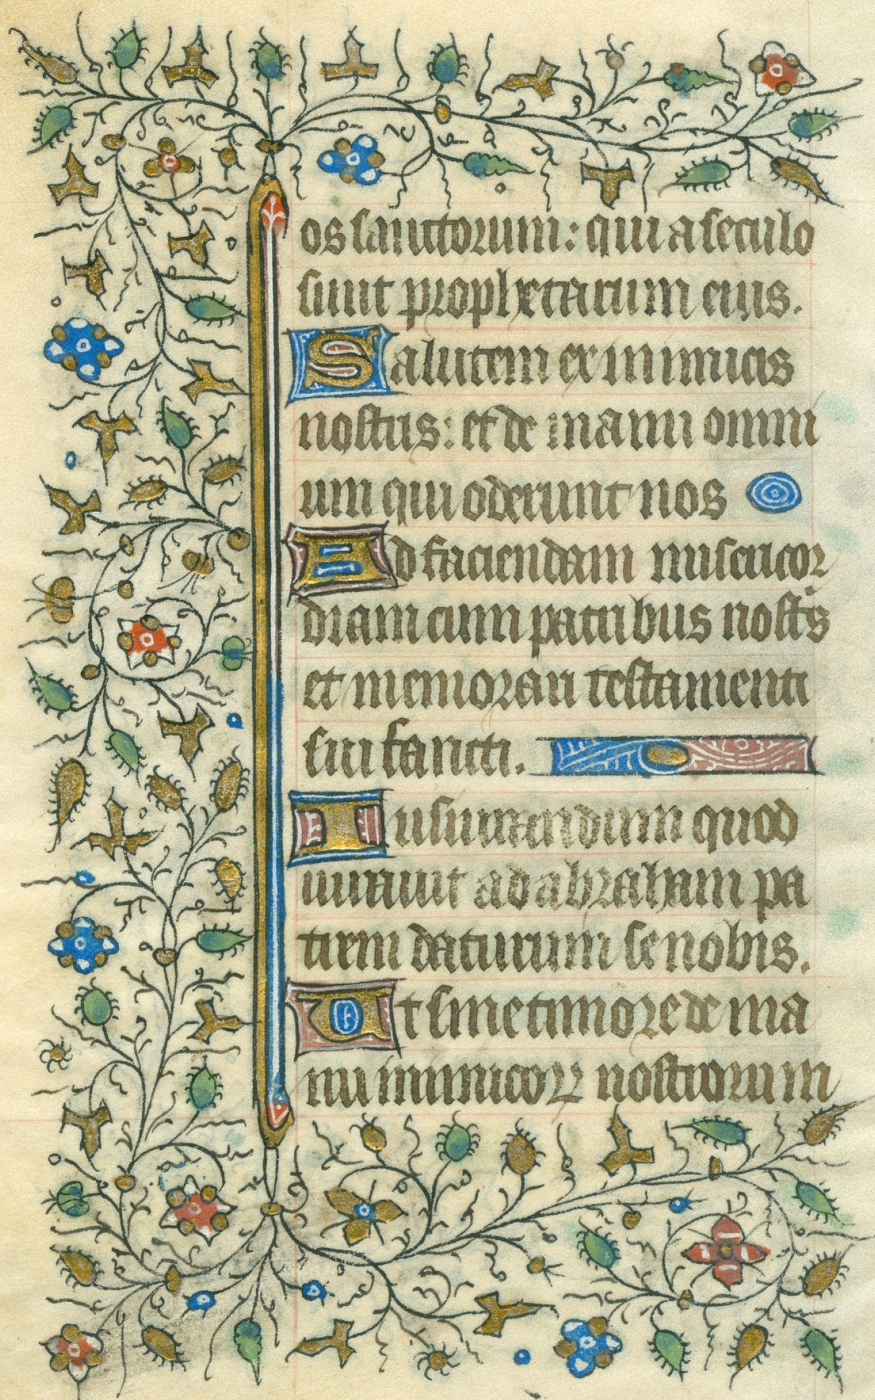 os sanctorum: qui a seculo
sunt prophetarum eius.
Salutem ex inimicis
nostris: et de manu omni
um qui oderunt nos
Ad faciendam misericor
diam cum patribus nostˢ
et memorari testamenti
sui sancti.
Iusiurandum quod
iuravit ad abraham pa
trem daturum se nobis.
Ut sine timore de ma
nu inimicoꝝ nostrorum